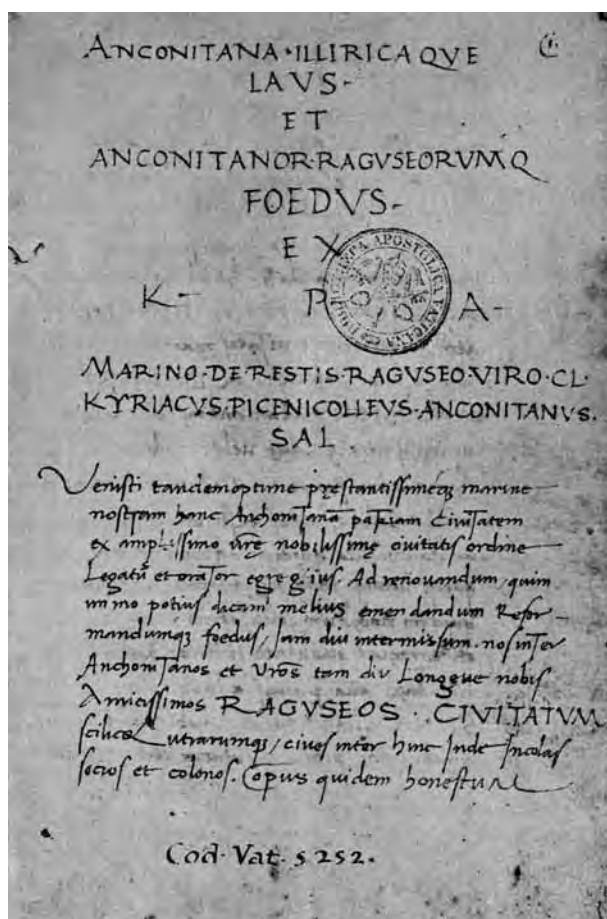 ANCONITANA · ILLIRICA QVE
LAVS -
ET
ANCONITANOR · RAGVSEORVMQ
FOEDVS -
EX
K - P A -
MARINO · DE RESTIS · RAGVSEO · VIRO · CL ·
KYRIACVS · PICENICOLLEVS · ANCONITANVS.
SAL .
Venisti tandem optime pręstantissimeq; marine
nostram hanc Anchonitanā patriam Civitatem
ex amplissimo vrę nobilissimę civitatis ordine
Legatū et orator egregius. Ad renovandum, quim
immo potius dicam melius emendandum Refor-
mandumq; foedus, Jam diu intermissum. nos inter
Anchonitanos et Vrōs tam div Longęue nobis
Amicissimos RAGVSEOS · CIVITATVM
utrarumq;, cives inter hinc Inde Incolas
socios et colonos. Opus quidem honestum
Cod. Vat. 5252.